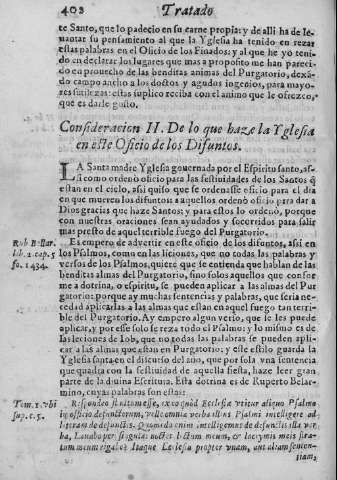 402 Tratado
te Santo, que lo padecio en su carne propia: y de alli ha de le-
uantar su pensamiento al que la Yglesia ha tenido en rezar
estas palabras en el Oficio de los Finados: y al que he yo teni-
do en declarar los lugares que mas a proposito me han pareci-
do en prouecho de las benditas animas del Purgatorio, dexá-
do campo ancho a los doctos y agudos ingenios, para mayo-
res sutilezas: estas suplico reciba con el animo que le ofrezco,
que es darle gusto.
Consideracion II. De lo que haze la Yglesia
en este Oficio de los Difuntos.
LA Santa madre Yglesia gouernada por el Espiritu santo, as-
si como ordenò oficio para las festiuidades de los Santos q̃
estan en el cielo, assi quiso que se ordenasse oficio para el dia
en que mueren los difuntos: a aquellos ordenò oficio para dar a
Dios gracias que haze Santos; y para estos lo ordenò, porque
con nuestras oraciones sean ayudados y socorridos para salir
mas presto de aquel terrible fuego del Purgatorio.
Rob. Bellar.
lib. 2. cap. 5
fo. 1434.
Es empero de advertir en este oficio de los difuntos, assi en
los Psalmos, como en las liciones, que no todas las palabras y
versos de los Psalmos, quiere que se entienda que hablan de las
benditas almas del Purgatorio, sino solos aquellos que confor-
me a dotrina, o espiritu, se pueden aplicar a las almas del Pur-
gatorio: porque ay muchas sentencias y palabras, que seria ne-
cedad aplicarlas a las almas que estan en aquel fuego tan terri-
ble del Purgatorio. Ay empero algun verso, que le les puede
aplicar, y por esse solo se reza todo el Psalmo: y lo mismo es de
las leciones de Iob, que no todas las palabras se pueden apli-
car a las almas que estan en Purgatorio: y este estilo guarda la
Yglesia santa en el discurso del año, que por sola vna sentencia
que quadra con la festiuidad de aquella fiesta, haze leer gran
parte de la diuina Escritura. Esta dotrina es de Ruperto Belar-
mino, cuyas palabras son estas:
Tom. 1. vbi
sup. c. 5.
Respondeo
Ecclesia vtitur aliquo Psalmo
in officio defunctorum, vel
verba illius Psalmi intelligere ad
literam de defunctis. Quomodo enim intelligemus de defunctis illa ver-
ba, Lauabo per singulas noctes lectum meum, & lacrymis meis stra-
tum meum rigabo? Itaque Ecclesia propter vnam, aut